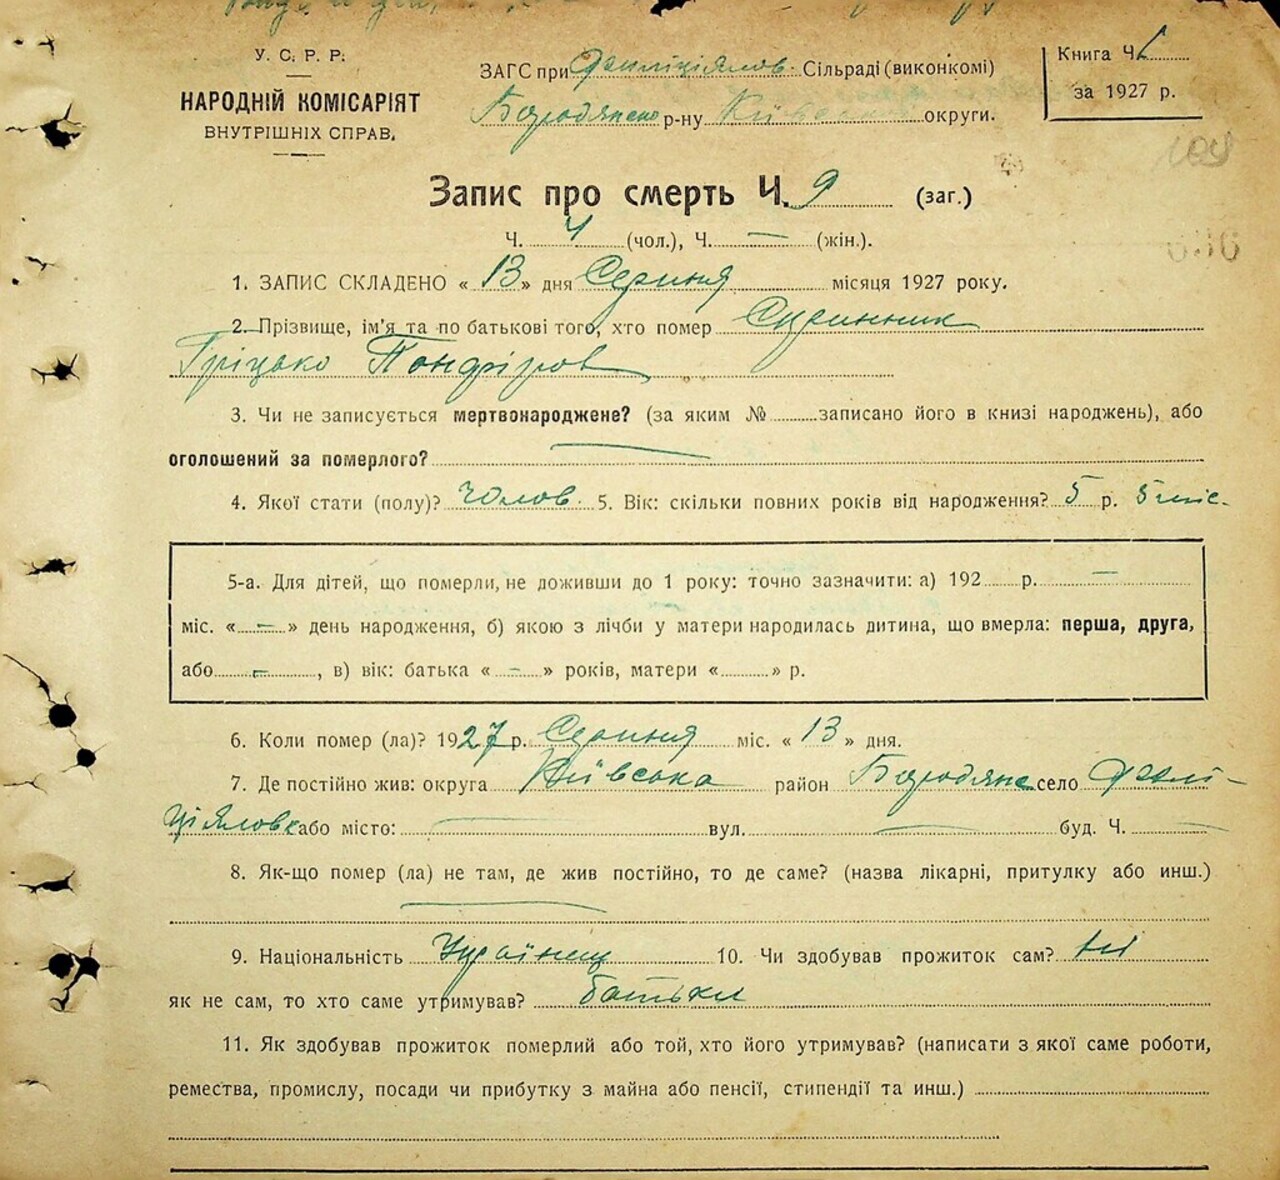 У. С. Р. Р.
НАРОДНІЙ КОМІСАРІЯТ
ВНУТРІШНІХ СПРАВ.
ЗАГС при Феліціялов. Сільраді (виконкомі)
Бородянсько р-ну Київської округи.
Книга Ч.
за 1927 р.
Запис про смерть Ч. 9 (заг.)
Ч. 4 (чол.), Ч. — (жін.).
1. ЗАПИС СКЛАДЕНО « 13 » дня Серпня місяця 1927 року.
2. Прізвище, ім'я та по батькові того, хто помер Скринник
Гріцько
3. Чи не записується мертвонароджене? (за яким № записано його в книзі народжень), або
оголошений за померлого? —
4. Якої стати (полу)? Чолов. 5. Вік: скільки повних років від народження? 5 р. 5 міс.
5-а. Для дітей, що померли, не доживши до 1 року: точно зазначити: а) 192 р. —
міс. « — » день народження, б) якою з лічби у матери народилась дитина, що вмерла: перша, друга,
або —, в) вік: батька « — » років, матери « » р.
6. Коли помер (ла)? 1927 р. Серпня міс. « 13 » дня.
7. Де постійно жив: округа Київська район Бородянс село Фелі-
ціяловк або місто: — вул. — буд. Ч. —
8. Як-що помер (ла) не там, де жив постійно, то де саме? (назва лікарні, притулку або инш.)
—
9. Національність Українец 10. Чи здобував прожиток сам? ні
як не сам, то хто саме утримував? батьки
11. Як здобував прожиток померлий або той, хто його утримував? (написати з якої саме роботи,
ремества, промислу, посади чи прибутку з майна або пенсії, стипендії та инш.)